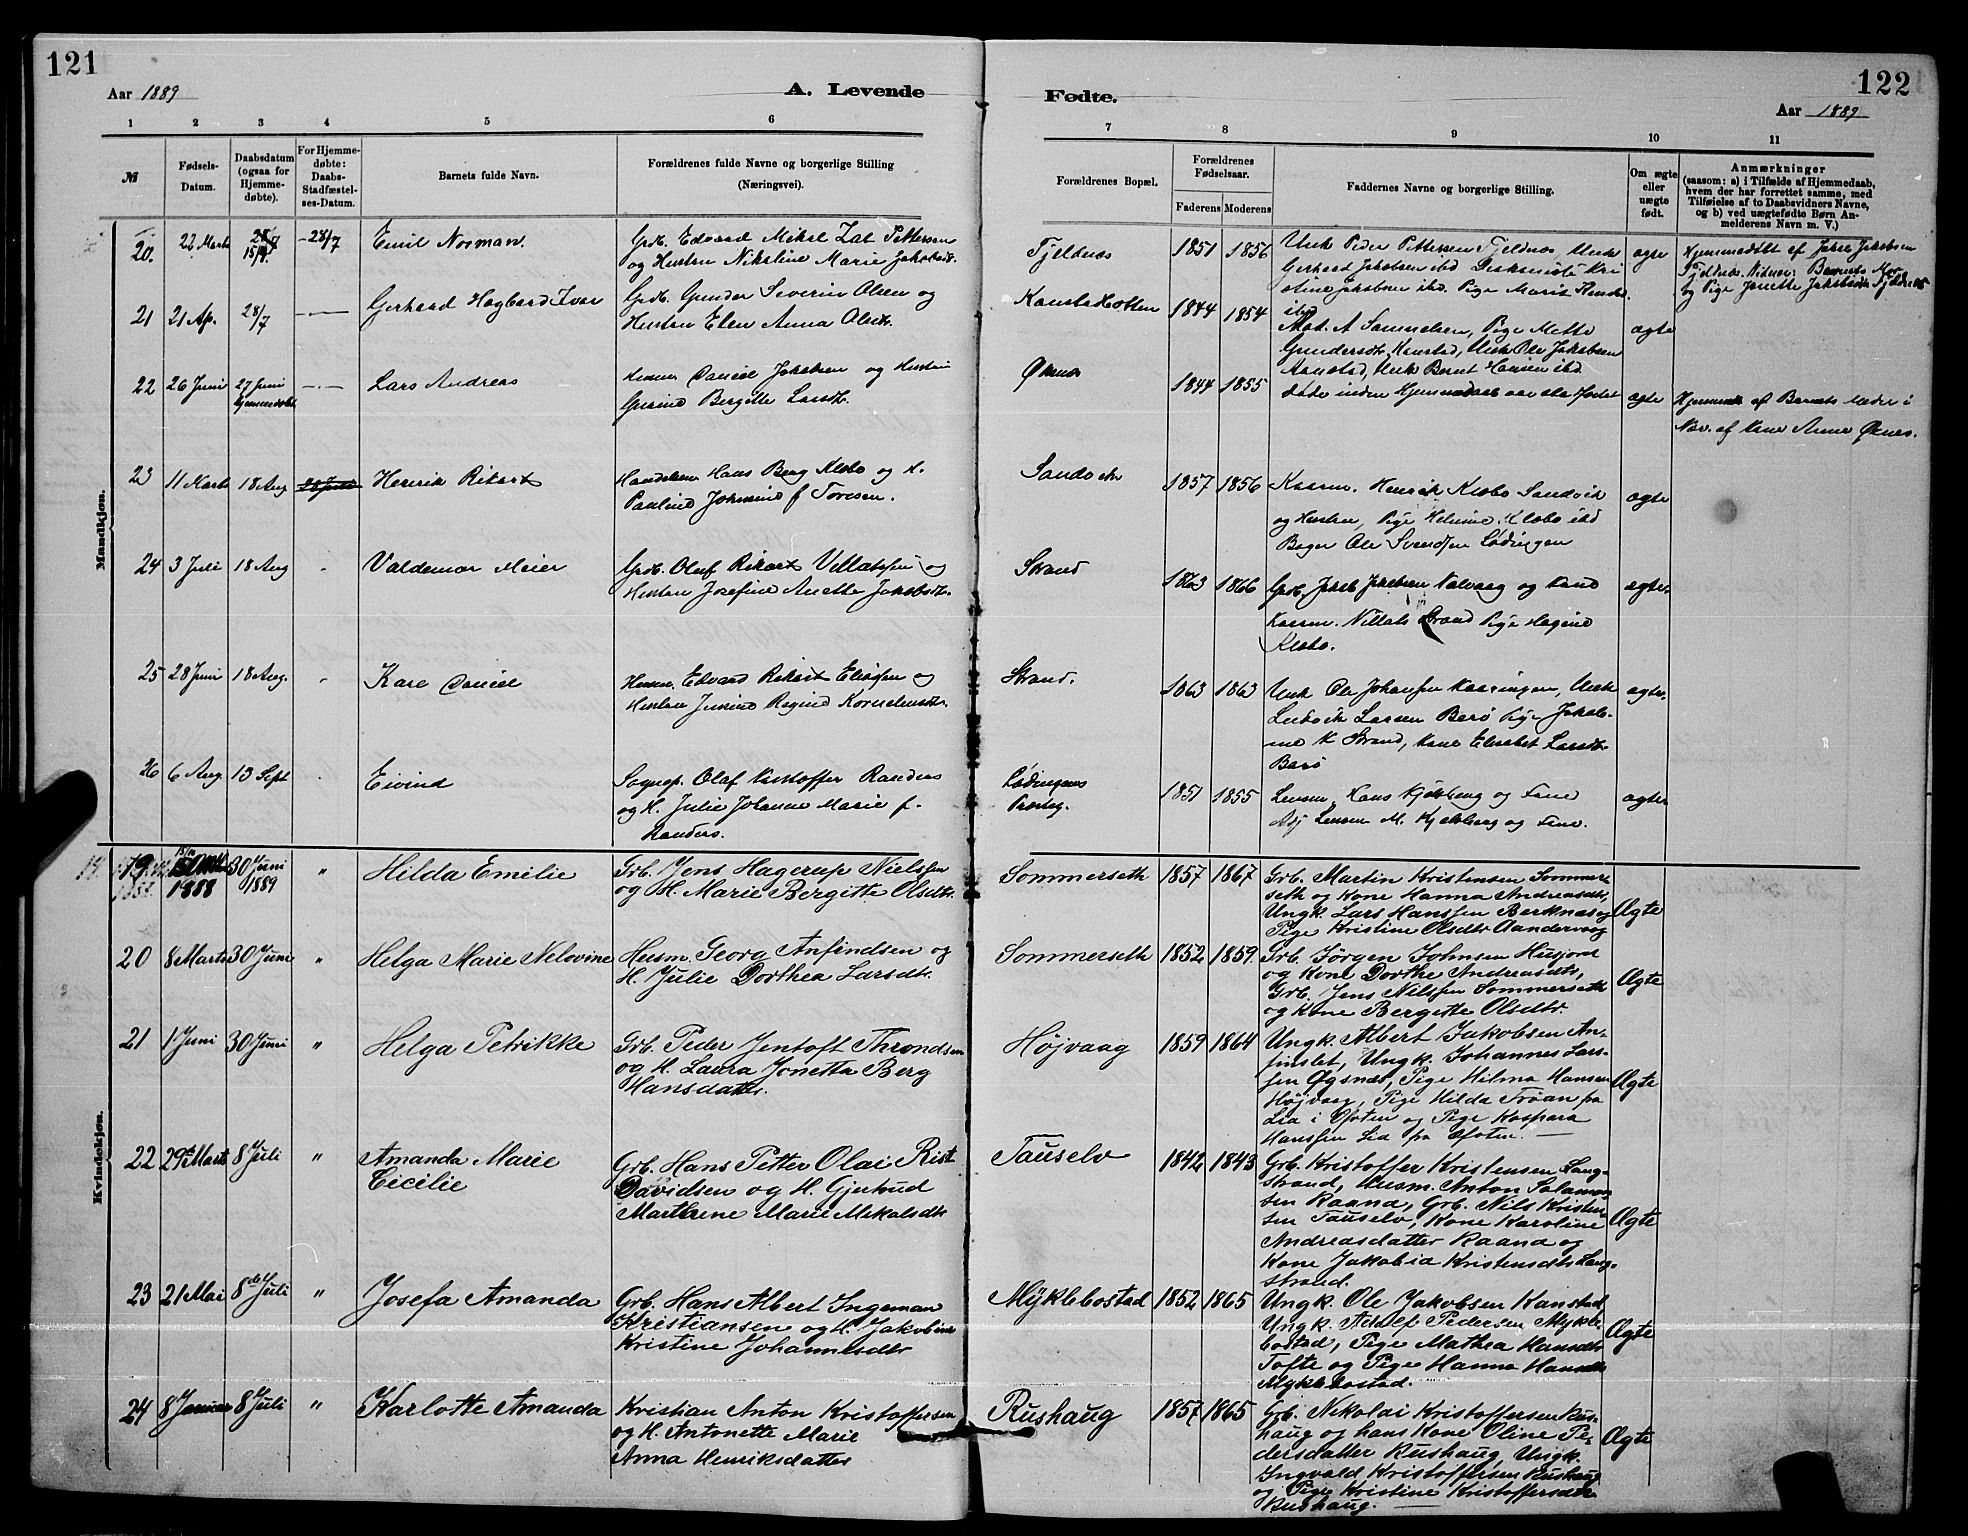 121
122
Aar 1889
A. Levende
Fødte.
Aar 1889
1 2 3 4 5 6
7 8 9 10 11
№
Fødsels-
Datum.
Daabsdatum
(ogsaa for
Hjemme-
døbte).
For Hjemme-
døbte:
Daabs-
Stadfæstel-
ses-Datum.
Barnets fulde Navn.
Forældrenes fulde Navne og borgerlige Stilling
(Næringsvei).
Forældrenes Bopæl.
Forældrenes
Fødselsaar.
Faderens Moderens
Faddernes Navne og borgerlige Stilling.
Om ægte
eller
uægte
født.
Anmærkninger
(saasom: a) i Tilfælde af Hjemmedaab,
hvem der har forrettet samme, med
Tilføielse af to Daabsvidners Navne,
og b) ved uægtefødte Børn An-
melderens Navn m. V.)
Mandkjøn.
20. 22 Marts 28/7 Emil Norman.
Grb. Edvard Mikal Zat Pettersen
og Hustru Nikoline Marie Jakobsdt.
Tjeldnes 1851 1856
Ungk Peder Pettersen Tjeldnes, Ungk
Gerhard Jakobsen ibd
stine Jakobsen ibd. Pige Marit
ibd
ægte
Hjemmedøbt af Jakob Jakobsen
Tjeldnes. Vidner: Barnets Mor
og Pige Janette Jakobsdt Tjeldnes
21 21 Ap. 28/7 Gerhard Hagbard Ivar
Grb. Gunder Severin Olsen og
Hustru Elen Anna Olsdt.
Kanstadbotten 1844 1854
Mat. A Samuelsen, Pige Mette
Gundersdt. Kanstad, Ungk Ole Jakobsen
Kanstad, Ungk Bernt Hansen ibd
ægte
22 26 Juni 27 Juni Lars Andreas
hjemmedøbt
Husm Daniel Jakobsen og Hustru
Bergitte Larsdt.
Øksnes 1844 1855
døde inden
ægte
Hjemmed. af Barnets
Nav. af Kone Anne Øksnes.
23 11 Marts 18 Aug Henrik Rikart
Handelsm Hans Berg Klæbo og H.
Pauline Johanne f Toresen.
Sandvik 1857 1856
Kaarm. Henrik Klæbo Sandvik
og Hustru, Pige Helmine Klæbo ibd
Bager Ole Svendsen Lødingen
ægte
24 3 Juli 18 Aug Valdemar Meier
Grb. Oluf Rikart Villatsen og
Hustru Josefine Anette Jakobsdt.
Strand 1863 1866
Grb. Jakob Jakobsen Nalvaag og Kone
Kaarm. Villats Strand Pige Hagine
Klæbo.
ægte.
25 28 Juni 18 Aug. Kare Daniel
Husm. Edvard Rikart Eliasen og
Hustru Regine Korneliusdt.
Strand. 1863 1863
Ungk Ole Johansen Kaaringen, Ungk
Ludvik Larsen Barø Pige Jakob-
ine K Strand, Kone Elisabet Larsdt.
Barø
ægte.
26 6 Aug. 13 Sept Eivind
Sognep. Olaf Kristoffer Randers
og H. Julie Johanne Marie f.
Randers.
Lødingens
Presteg. 1851 1855
Lensm. Hans Kjelsberg og Frue
Adj Lensm M. Kjelsberg og Frue.
ægte
Kvindekjøn.
19 15/10 1888 30 Juni 1889 " Hilda Emilie
Grb. Jens Hagerup Nielsen
og H. Marie Bergitte Olsdtr.
Sommerseth 1857 1867
Grb. Martin Kristensen Sommer-
seth og Kone Hanna Andreasdtr,
Ungk. Lars Hanssen Berknes og
Pige Kristine Olsdtr Aandervaag
Ægte
20 8 Marts 30 Juni " Helga Marie Nelovine
Husm. Georg Anfindsen og
H. Julie Dorthea Larsdtr.
Sommerseth 1852 1859
Grb. Jørgen Johnsen Husjord
og Kone Dorthe Andreasdtr,
Grb. Jens Nilssen Sommerseth
og Kone Bergitte Olsdtr.
Ægte
21 1 Juni 30 Juni " Helga Petrikke
Grb. Peder Jentoft Throndsen
og H. Laura Jonetta Berg
Hansdatter.
Højvaag 1859 1864
Ungk. Albert Jakobsen An-
finslet, Ungk. Johannes Lars-
sen Øgsnes, Pige Hilma Hansen
Højvaag, Pige Hilda Trøan fra
Lia i Ofoten og Pige Kaspara
Hanssen Lia fra Ofoten. —
Ægte
22 29de Marts 8 Juli " Amanda Marie
Cecilie
Grb. Hans Petter Olai Rist
Davidsen og H. Gjertrud
Marthrene Marie Mekalsdtr
Tauselv 1842 1843
Grb. Kristoffer Kristensen Lang-
strand, Husm. Anton Salamon-
sen Raand, Grb. Nils Kristen-
sen Tauselv, Kone Karoline
Andreasdatter Raand og
Kone Jakobia Kristensdtr Lang-
strand.
Ægte
23 21 Mai 8de Juli " Josefa Amanda
Grb. Hans Albert Ingeman
Kristiansen og H. Jakobine
Kristine Johannesdtr
Myklebostad 1852 1865
Ungk. Ole Jakobsen Kanstad
Ungk. Adolf Pedersen Mykle-
bostad, Pige Mathea Hansdtr
Tofte og Pige Hanna Hansdtr
Myklebostad.
Ægte
24 8 Januar 8 Juli " Karlotte Amanda
Kristian Anton Kristoffersen
og H. Antonette Marie
Anna Henriksdatter
Rushaug 1857 1865
Grb. Nikolai Kristoffersen Rus-
haug og hans Kone Oline Pe-
dersdatter Rushaug, Ungk.
Ingvald Kristoffersen Rushaug
og Pige Kristine Kristoffersdtr
Rushaug. —
Ægte